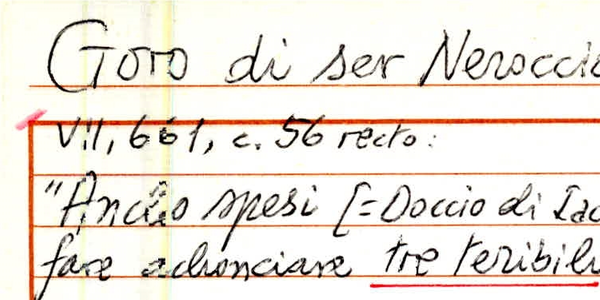 Goro di ser Neroccio
VII, 661, c. 56 recto:
"Ancho spesi [=Doccio di Iac
fare achonciare tre teribili